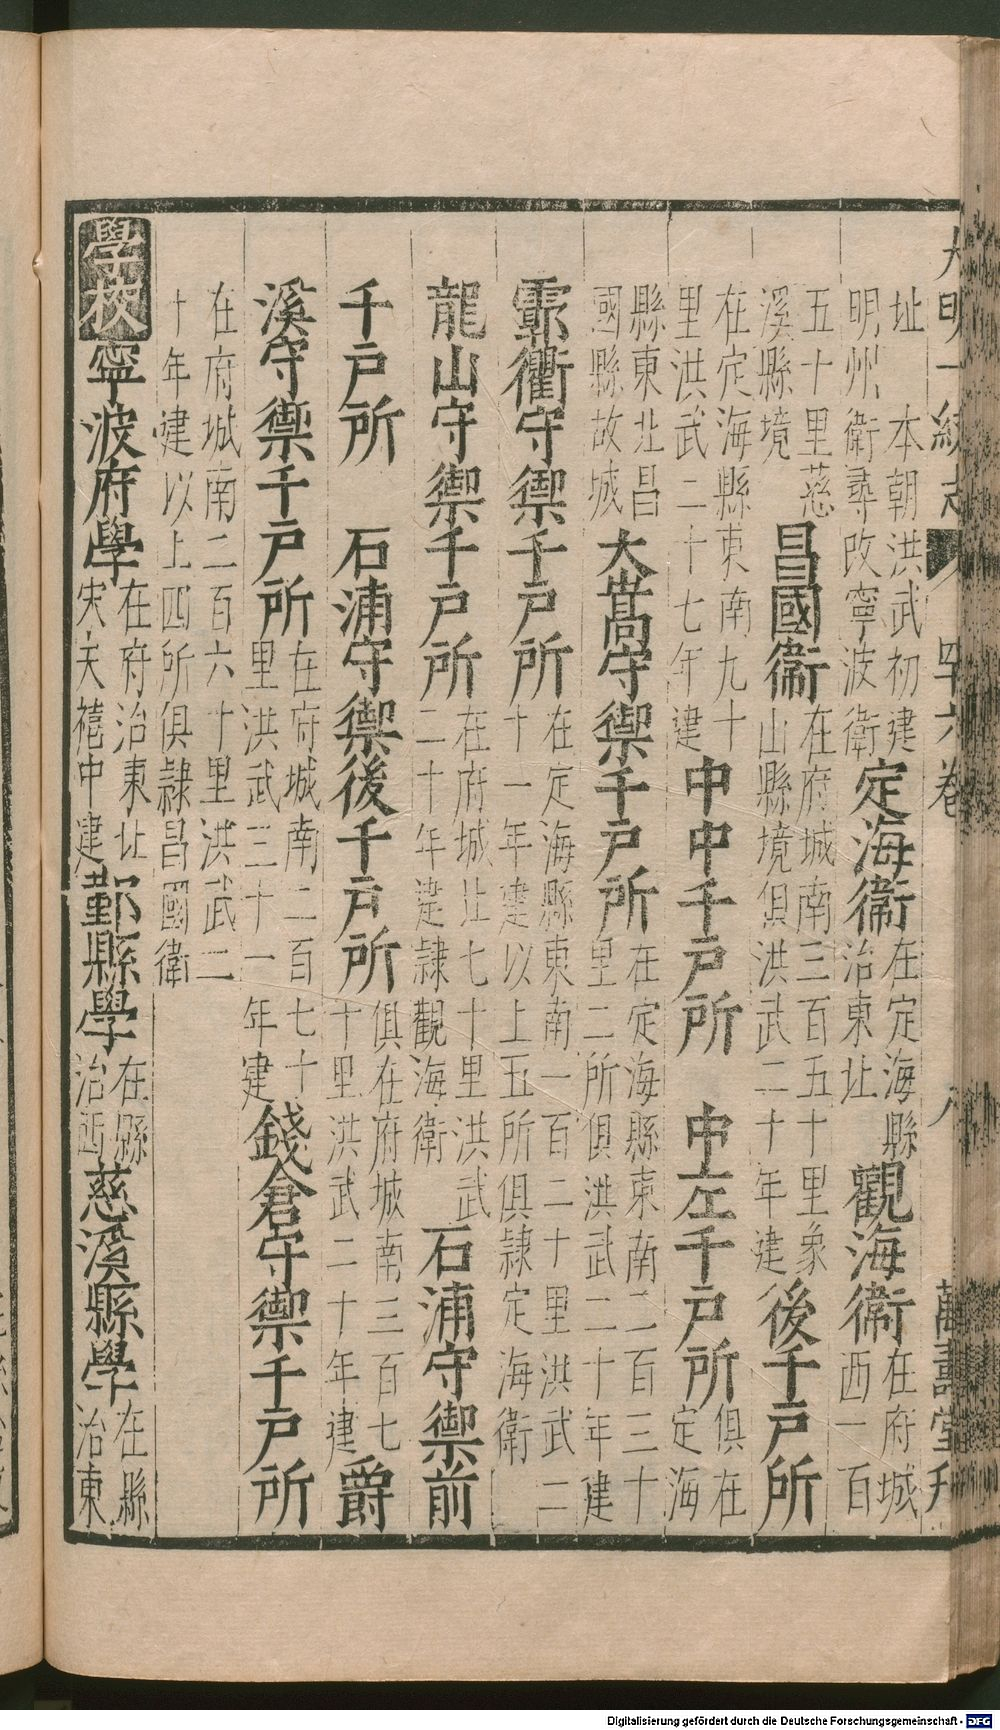 大明一統志 四十六卷 八 萬壽堂刋
址 本朝洪武初建明州衛尋改寧波衛定海衛在定海縣治東北觀海衛在府城西一百
五十里慈溪縣境昌國衛在府城南三百五十里象山縣境俱洪武二十年建後千戶所
在定海縣東南九十里洪武二十七年建中中千戶所 中左千戶所俱在定海
縣東北昌國縣故城大嵩守禦千戶所在定海縣東南二百三十里二所俱洪武二十年建
霩衢守禦千戶所在定海縣東南一百二十里洪武二十一年建以上五所俱隸定海衛
龍山守禦千戶所在府城北七十里洪武二十年建隸觀海衛石浦守禦前
千戶所 石浦守禦後千戶所俱在府城南三百七十里洪武二十年建爵
溪守禦千戶所在府城南二百七十里洪武三十一年建錢倉守禦千戶所
在府城南二百六十里洪武二十年建以上四所俱隸昌國衛
學校寧波府學在府治東北宋天禧中建鄞縣學在縣治西慈溪縣學在縣治東
Digitalisierung gefördert durch die Deutsche Forschungsgemeinschaft - DFG